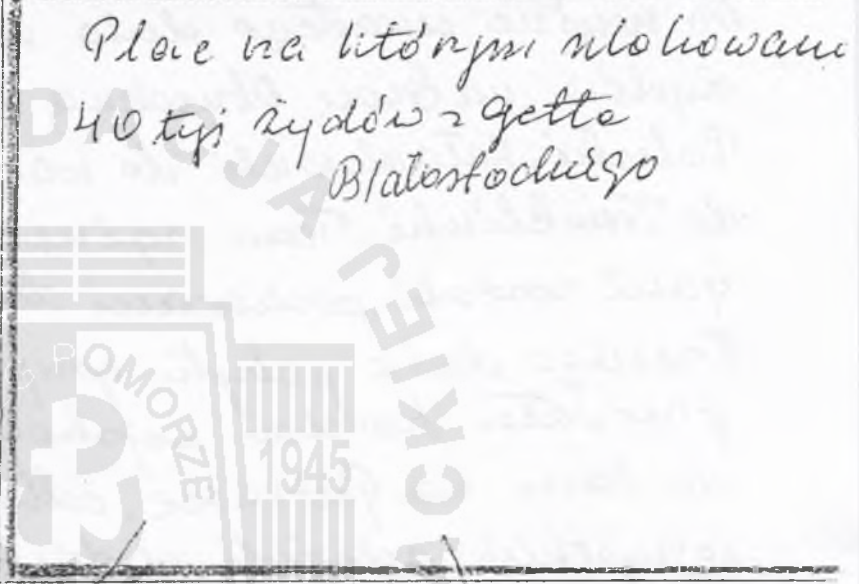 Plac na którym ulokowano
40 tyś żydów z getta
Białostockiego
DACJA
ACKIEJ
POMORZE
1945